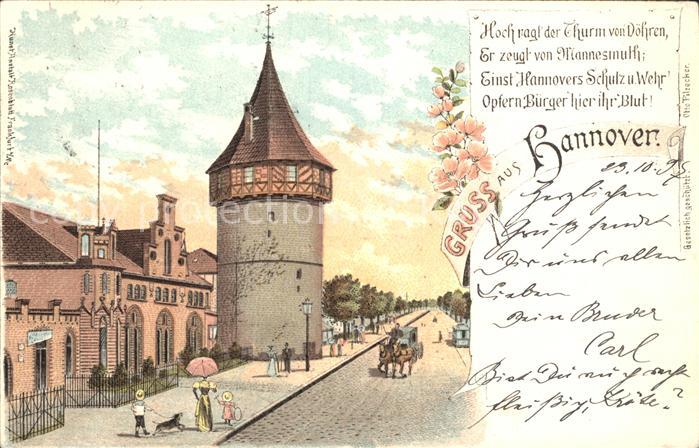 Hoch ragt der Thurm von Döhren,
Er zeugt von Mannesmuth;
Einst Hannovers Schutz u. Wehr
Opfern Bürger hier ihr Blut!
GRUSS AUS
Hannover.
23.10.97
Herzlichen
Gruß sendet
Dir uns allen
Lieben
Dein Bruder
Carl
Bist Du auch recht
fleißig, Käte?
Otto Pilzecker.
Gesetzlich geschützt.